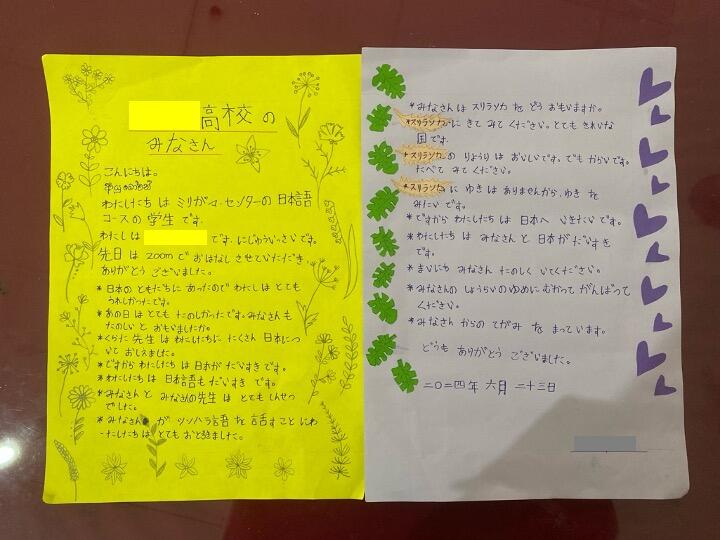 高校の
みなさん
こんにちは。
わたしたちは ミリガーイ・センターの 日本語
コースの 学生 です。
わたしは です。にじゅういっさいです。
先日は zoomで おはなし させていただき、
ありがとう ございました。
*日本の ともだちに あったので わたしは とても
うれしかったです。
*あの日は とても たのしかったです。みなさんも
たのしい と おもいましたか。
*くらた 先生は わたしたちに たくさん 日本につ
いて おしえました。
*ですから わたしたちは 日本が だいすき です。
*わたしたちは 日本語も だいすき です。
*みなさんと みなさんの先生は とても しんせつ
でした。
*みなさん が シンハラ語 を 話す ことに わ
たしたちは とても おどろきました。
*みなさんは スリランカ を どう おもいますか。
*スリランカ に きて みて ください。とても きれいな
国です。
*スリランカ の りょうり は おいしいです。でも からいです。
たべて みて ください。
*スリランカ に ゆき は ありませんから、ゆき を
みたい です。
*ですから わたしたちは 日本へ いきたいです。
*わたしたちは みなさん と 日本が だいすき
です。
*まいにち みなさん たのしく いてください。
*みなさんの しょうらいの ゆめに むかって がんばって
ください。
*みなさん からの てがみ を まっています。
どうも ありがとう ございました。
二〇二四年 六月 二十三日